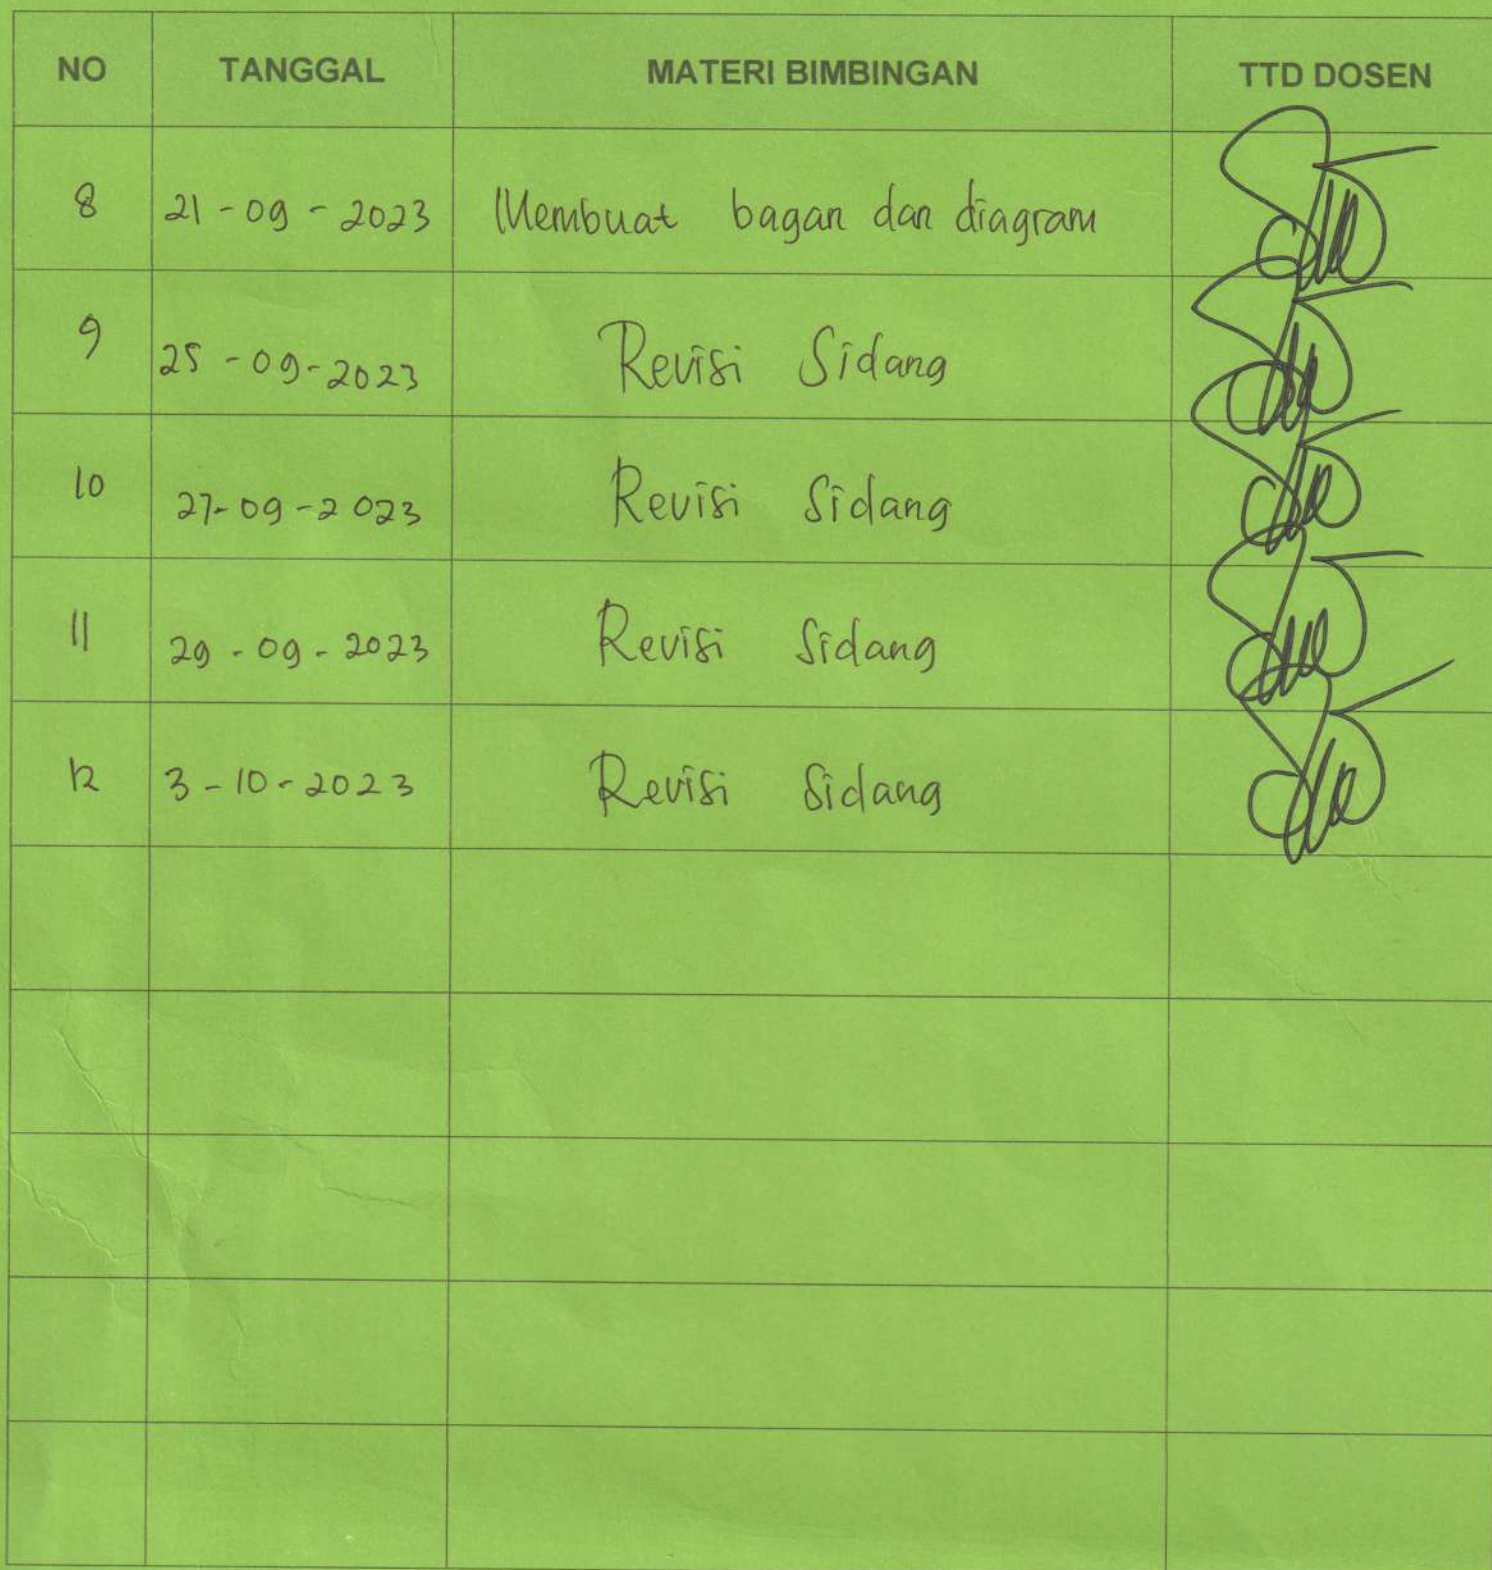 NO TANGGAL MATERI BIMBINGAN TTD DOSEN
8 21-09-2023 Membuat bagan dan diagram
9 25-09-2023 Revisi Sidang
10 27-09-2023 Revisi Sidang
11 29-09-2023 Revisi Sidang
12 3-10-2023 Revisi Sidang